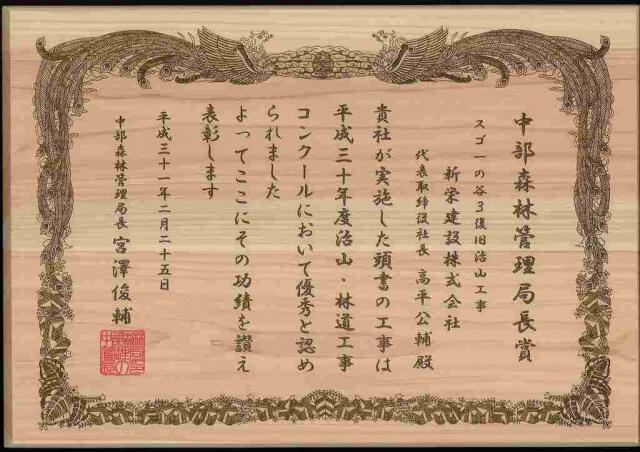 中部森林管理局長賞
スゴ一の谷3復旧治山工事
新栄建設株式会社
代表取締役社長 高平公輔殿
貴社が実施した頭書の工事は
平成三十年度治山・林道工事
コンクールにおいて優秀と認め
られました
よってここにその功績を讃え
表彰します
平成三十一年二月二十五日
中部森林管理局長 宮澤俊輔